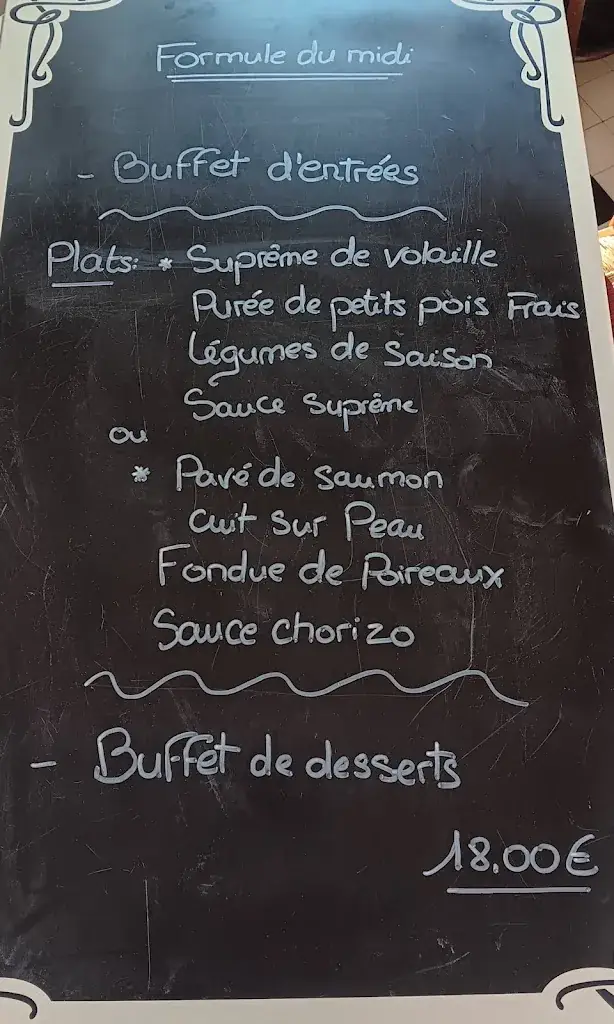 Formule du midi
- Buffet d'entrées
Plats: * Suprême de volaille
Purée de petits pois Frais
Légumes de Saison
Sauce Suprême
ou
* Pavé de saumon
cuit sur Peau
Fondue de Poireaux
Sauce chorizo
- Buffet de desserts
18.00€